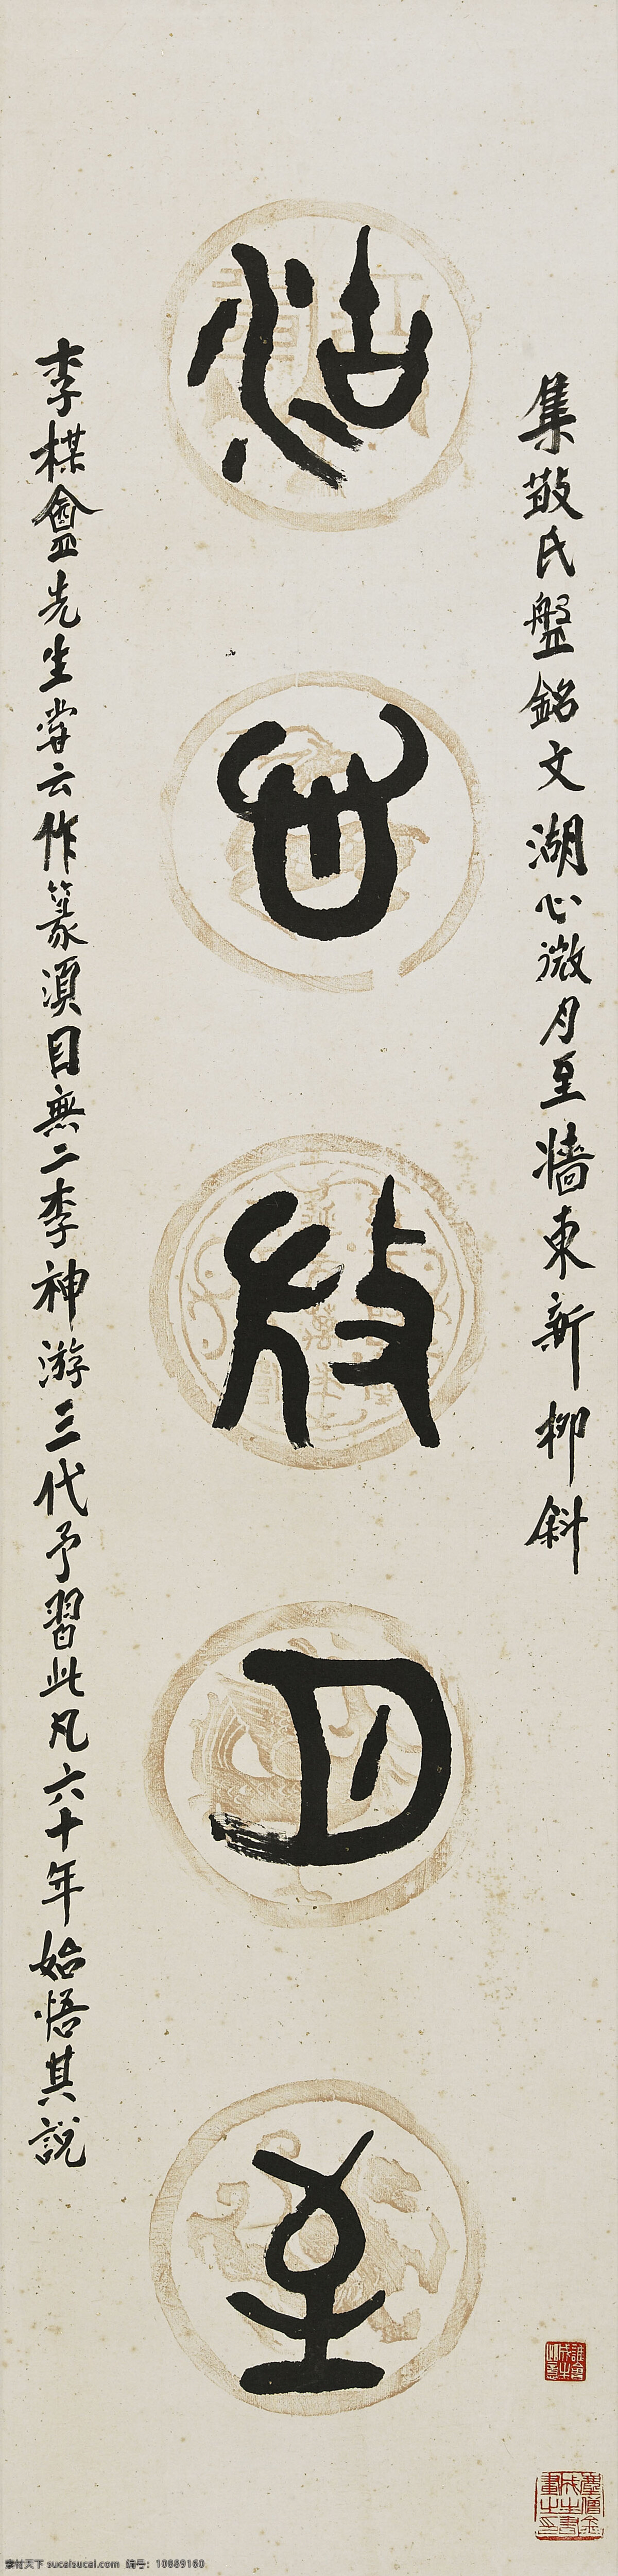 集散氏盤銘文湖心微月至牆東新柳斜
湖心微月至
李楳盦先生嘗云作篆須目無二李神游三代予習此凡六十年始悟其說
素材天下 sucaisucai.com 编号：10889160